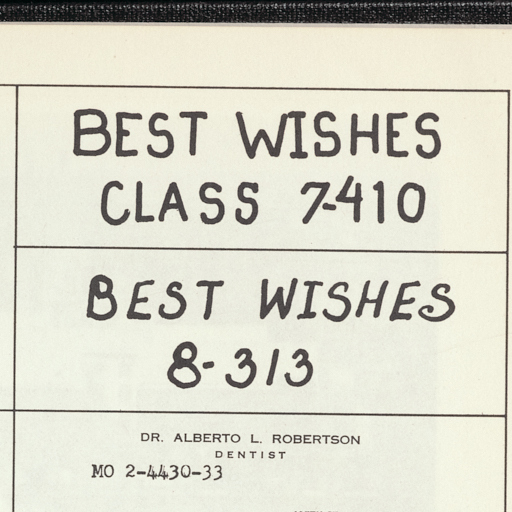 BEST WISHES
CLASS 7-410
BEST WISHES
8-313
DR. ALBERTO L. ROBERTSON
DENTIST
MO 2-4430-33